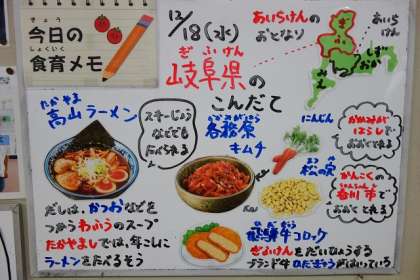 きょう
今日の
しょくいく
食育メモ
12/18(水)
ぎふけん
岐阜県の
こんだて
あいちけんの
おとなり
あいち
けん
しずおか
みえ
たかやま
高山ラーメン
スキーじょう
などでも
たべられる
かかみがはら
各務原
キムチ
にんじん
まつ み
松の実
かかみが
はらしで
おおくとれる
かんこくの
春川市で
おおくとれる
だしは、かつおなどを
つかう わふうのスープ
たかやましでは、年こしに
ラーメンをたべるそう
ひだぎゅう
飛騨牛コロッケ
ぎふけんをだいひょうする
ブランド牛 ひだぎゅうがはいっている